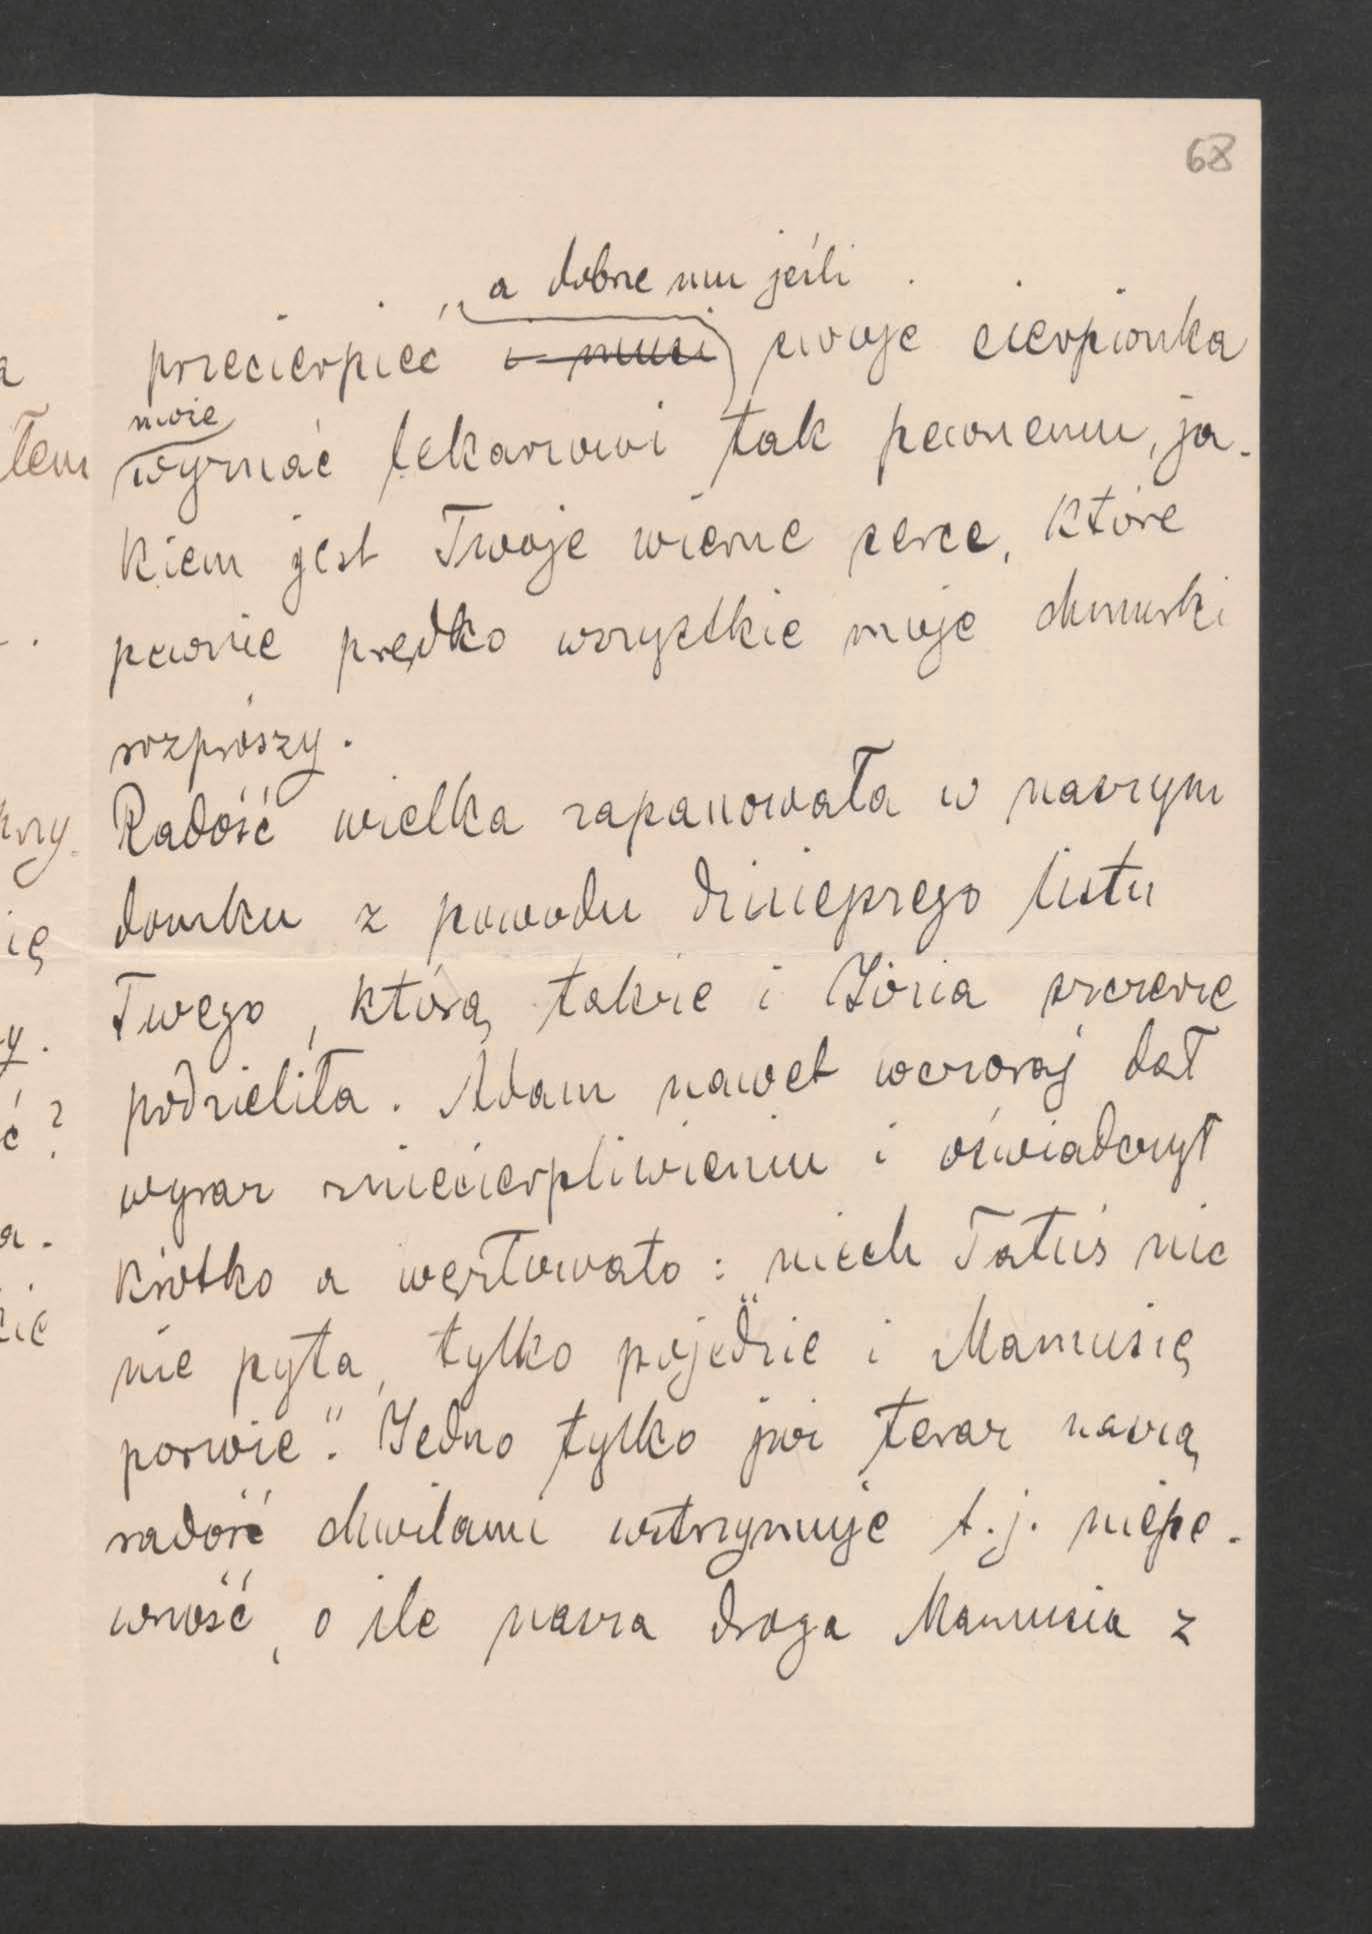 68
a dobrze mu jeśli
przecierpieć i musi swoje cierpionka
może
wyznać lekarzowi tak pewnemu, ja-
kiem jest Twoje wierne serce, które
pewnie prędko wszystkie moje chmurki
rozprószy.
Radość wielka zapanowała w naszym
domku z powodu dzisiejszego listu
Twego, którą także i Józia szczerze
podzieliła. Adam nawet wczoraj dał
wyraz zniecierpliwieniu i oświadczył
krótko a węzłowato: „niech Tatuś nic
nie pyta, tylko pojedzie i Mamusię
porwie". Jedno tylko już teraz naszą
radość chwilami wstrzymuje t.j. niepe-
wność, o ile nasza droga Mamusia z